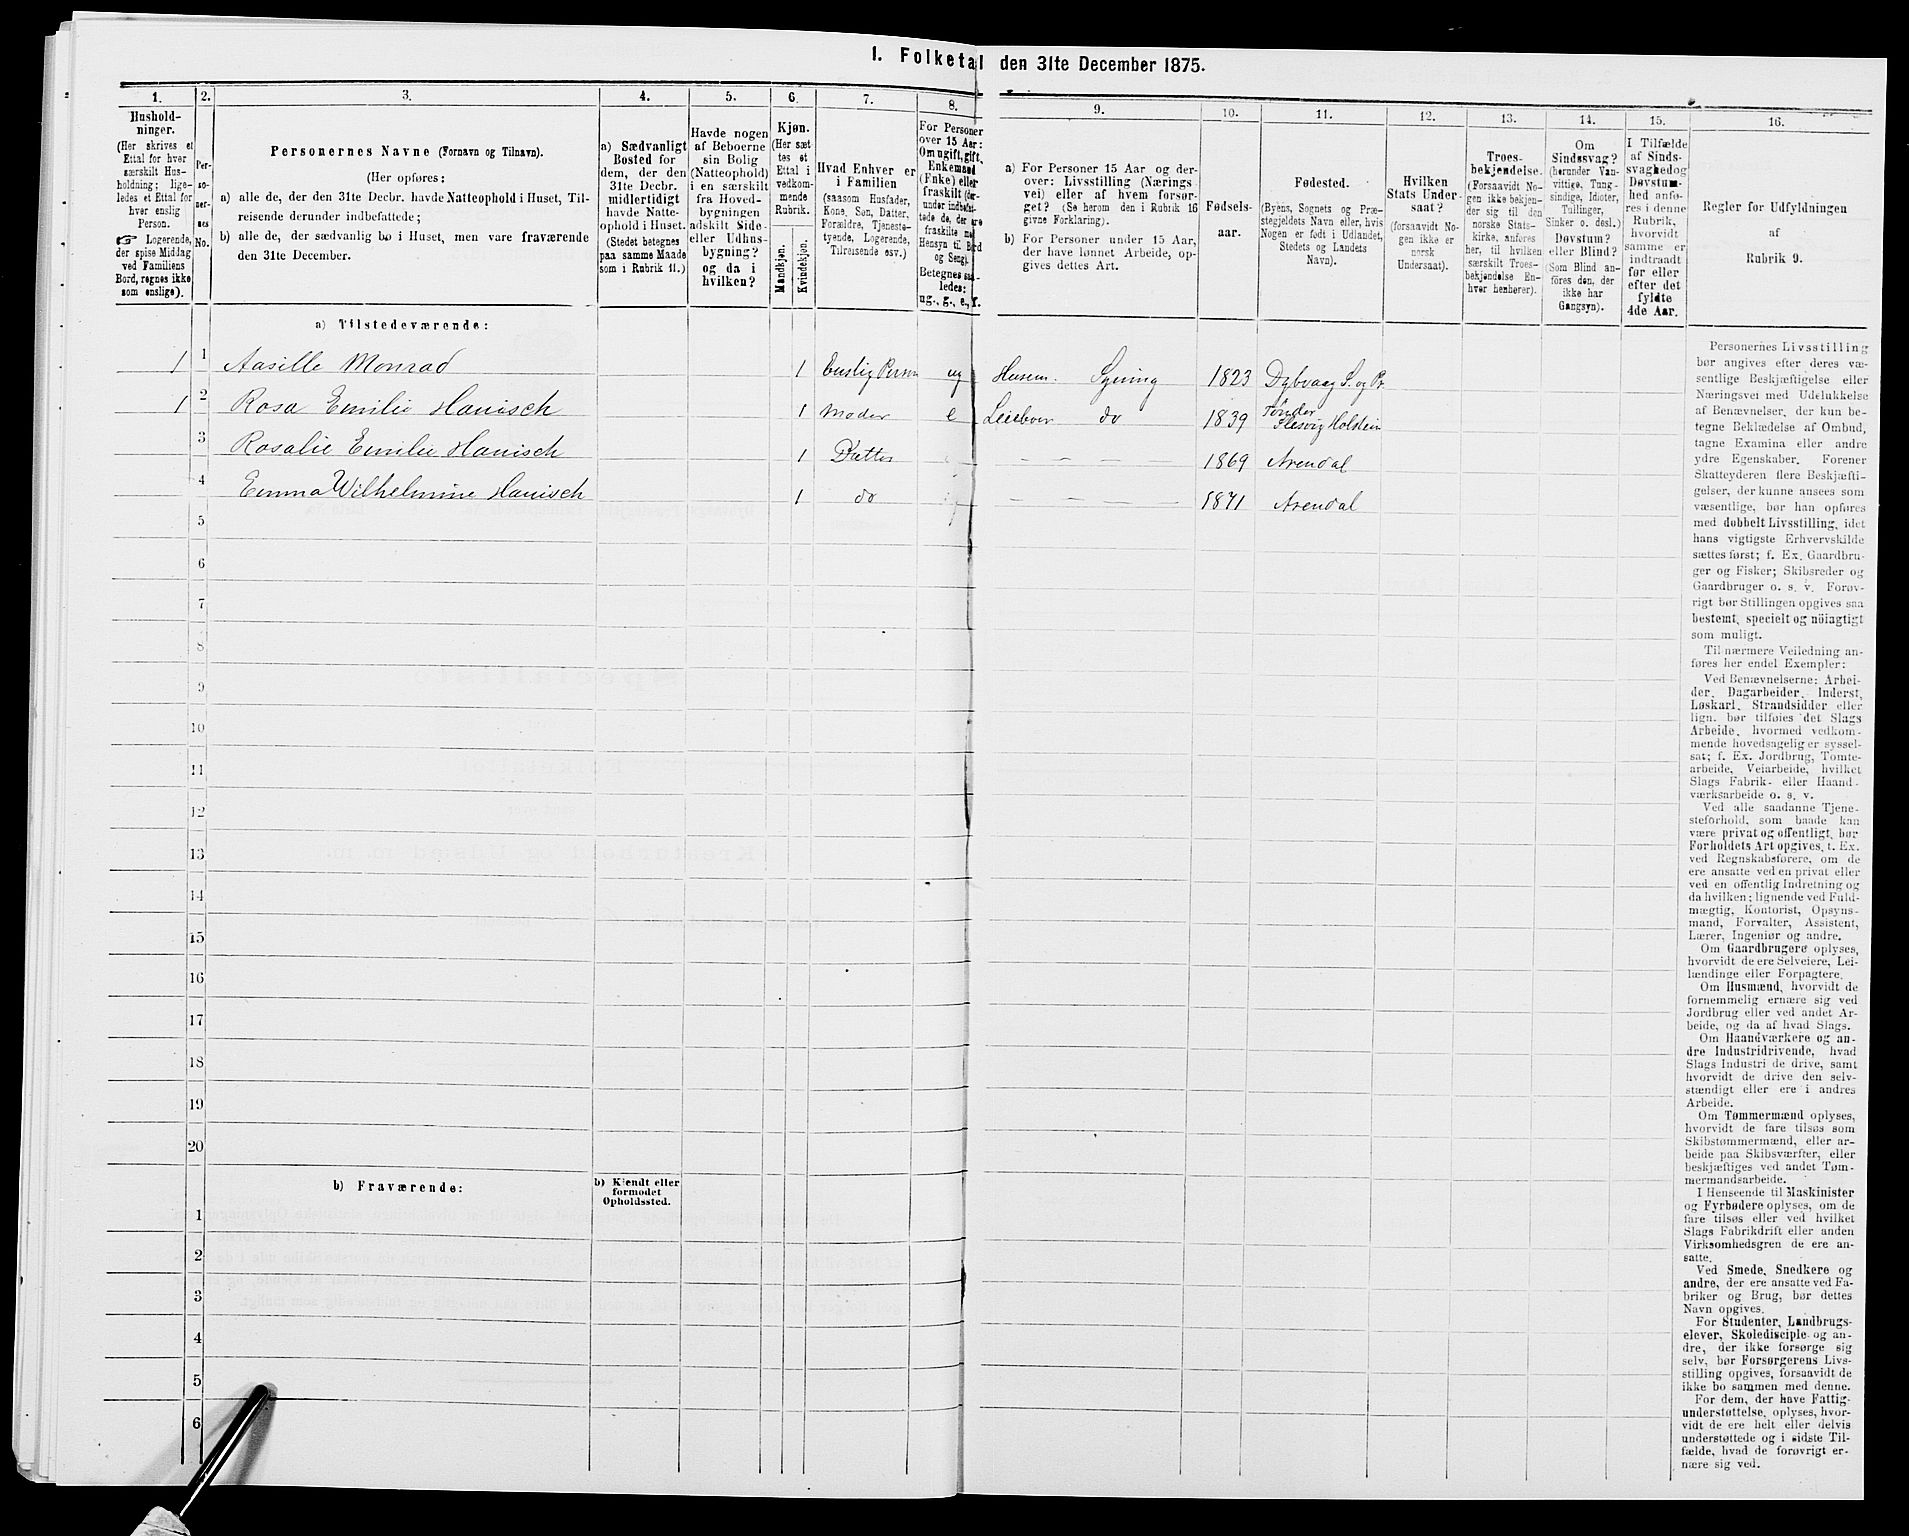 I. Folketal den 31te December 1875.
1.
Hushold-
ninger.
(Her skrives et
Ettal for hver
særskilt Hus-
holdning; lige-
ledes et Ettal for
hver enslig
Person.
☞ Logerende,
der spise Middag
ved Familiens
Bord, regnes ikke
som enslige).
2.
Per-
so-
ner-
nes
No.
3.
Personernes Navne (Fornavn og Tilnavn).
(Her opføres:
a) alle de, der den 31te Decbr. havde Natteophold i Huset, Til-
reisende derunder indbefattede;
b) alle de, der sædvanlig bo i Huset, men vare fraværende
den 31te December.
4.
a) Sædvanligt
Bosted for
dem, der den
31te Decbr.
midlertidigt
havde Natte-
ophold i Huset.
(Stedet betegnes
paa samme Maade
som i Rubrik 11.)
5.
Havde nogen
af Beboerne
sin Bolig
(Natteophold)
i en særskilt
fra Hoved-
bygningen
adskilt Side-
eller Udhus-
bygning?
og da i
hvilken?
6.
Kjøn.
(Her sæt
tes et
Ettal i
vedkom-
mende
Rubrik.
Mandkjøn.
Kvindekjøn.
7.
Hvad Enhver er
i Familien
(saasom Husfader,
Kone, Søn, Datter,
Forældre, Tjeneste-
tyende, Logerende,
Tilreisende osv.)
8.
For Personer
over 15 Aar:
Om ugift, gift,
Enkemand
(Enke) eller
fraskilt (der-
under indbefat-
tede de, der ere
fraskilte med
Hensyn til Bord
og Seng).
Betegnes saa-
ledes:
ug., g., e., f.
9.
a) For Personer 15 Aar og der-
over: Livsstilling (Nærings
vei) eller af hvem forsør-
get? (Se herom den i Rubrik 16
givne Forklaring).
b) For Personer under 15 Aar,
der have lønnet Arbeide, op-
gives dettes Art.
10.
Fødsels-
aar.
11.
Fødested.
(Byens, Sognets og Præ-
stegjeldets Navn eller, hvis
Nogen er født i Udlandet,
Stedets og Landets
Navn).
12.
Hvilken
Stats Under-
saat?
(forsaavidt No-
gen ikke er
norsk
Undersaat).
13.
Troes-
bekjendelse.
(Forsaavidt No-
gen ikke bekjen-
der sig til den
norske Stats-
kirke, anføres
her, til hvilken
særskilt Troes-
bekjendelse En-
hver henhører).
14.
Om
Sindssvag?
(herunder Van-
vittige, Tung-
sindige, Idioter,
Tullinger,
Sinker o. desl.)
Døvstum?
eller Blind?
(Som Blind an-
føres den, der
ikke har
Gangsyn).
15.
I Tilfælde
af Sinds-
svaghed og
Døvstum-
hed anfø-
res i denne
Rubrik,
hvorvidt
samme er
indtraadt
før eller
efter det
fyldte
4de Aar.
16.
Regler for Udfyldningen
af
Rubrik 9.
a) Tilstedeværende:
1 1 Aasille Monrad 1 Enslig Person ug Husem. Syning 1823 Dybvaag S. og Pr.
1 2 Rosa Emilie Hanisch 1 Moder e Leieboer do 1839 Tønder Slesvig Holstein
3 Rosalie Emilie Hanisch 1 Datter — — 1869 Arendal
4 Emma Wilhelmine Hanisch 1 do — — 1871 Arendal
5
6
7
8
9
10
11
12
13
14
15
16
17
18
19
20
b) Fraværende:
b) Kjendt eller
formodet
Opholdssted.
1
2
3
4
5
6
Personernes Livsstilling
bør angives efter deres væ-
sentlige Beskjæftigelse eller
Næringsvei med Udelukkelse
af Benævnelser, der kun be-
tegne Beklædelse af Ombud,
tagne Examina eller andre
ydre Egenskaber. Forener
Skatteyderen flere Beskjæfti-
gelser, der kunne ansees som
væsentlige, bør han opføres
med dobbelt Livsstilling, idet
hans vigtigste Erhvervskilde
sættes først; f. Ex. Gaardbru-
ger og Fisker; Skibsreder og
Gaardbruger o. s. v. Forøv-
rigt bør Stillingen opgives saa
bestemt, specielt og nöiagtigt
som muligt.
Til nærmere Veiledning an-
føres her endel Exempler:
Ved Benævnelserne: Arbei-
der, Dagarbeider, Inderst,
Løskarl, Strandsidder eller
lign. bør tilføies det Slags
Arbeide, hvormed vedkom-
mende hovedsagelig er syssel-
sat; f. Ex. Jordbrug, Tomte-
arbeide, Veiarbeide, hvilket
Slags Fabrik- eller Haand-
værksarbeide o. s. v.
Ved alle saadanne Tjene-
steforhold, som baade kan
være privat og offentligt, bør
Forholdets Art opgives, f. Ex.
ved Regnskabsførere, om de
ere ansatte ved en privat eller
ved en offentlig Indretning og
da hvilken; lignende ved Fuld-
mægtig, Kontorist, Opsyns-
mand, Forvalter, Assistent,
Lærer, Ingeniør og andre.
Om Gaardbrugere oplyses,
hvorvidt de ere Selveiere, Lei-
lændinge eller Forpagtere.
Om Husmænd, hvorvidt de
fornemmelig ernære sig ved
Jordbrug eller ved andet Ar-
beide, og da af hvad Slags.
Om Haandværkere og an-
dre Industridrivende, hvad
Slags Industri de drive, samt
hvorvidt de drive den selv-
stændigt eller ere i andres
Arbeide.
Om Tømmermænd oplyses,
hvorvidt de fare tilsøs som
Skibstømmermænd, eller ar-
beide paa Skibsværfter, eller
beskjæftiges ved andet Tøm-
mermandsarbeide.
I Henseende til Maskinister
og Fyrbødere oplyses, om de
fare tilsøs eller ved hvilket
Slags Fabrikdrift eller anden
Virksomhedsgren de ere an-
satte.
Ved Smede, Snedkere og
andre, der ere ansatte ved Fa-
briker og Brug, bør dettes
Navn opgives.
For Studenter, Landbrugs-
elever, Skoledisciple og an-
dre, der ikke forsørge sig
selv, bør Forsørgerens Livs-
stilling opgives, forsaavidt de
ikke bo sammen med denne.
For dem, der have Fattig-
understøttelse, oplyses, hvor-
vidt de ere helt eller delvis
understøttede og i sidste Til-
fælde, hvad de forøvrigt er-
nære sig ved.